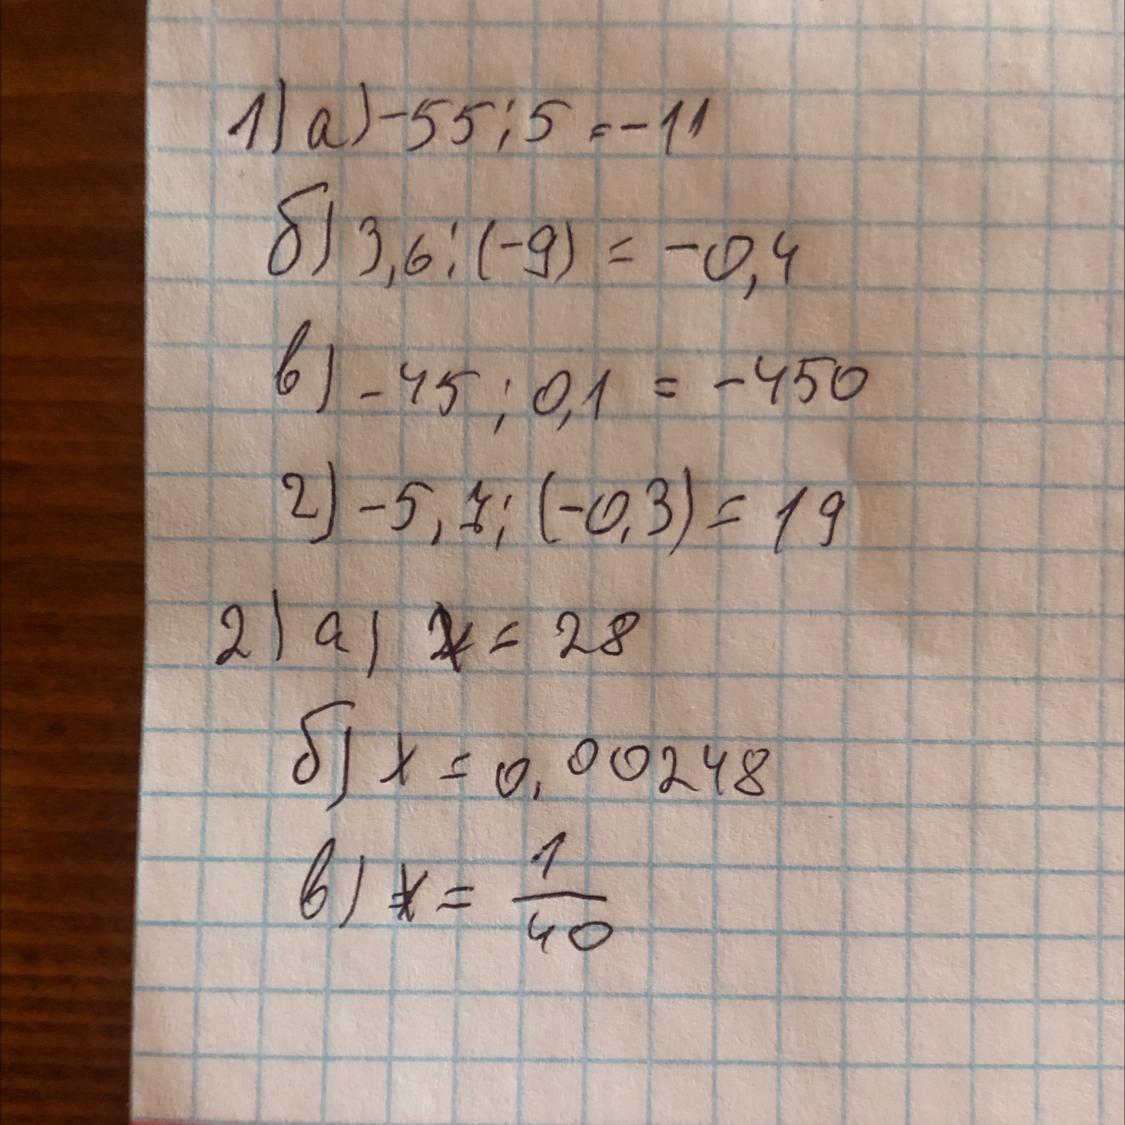 1) а) -55 : 5 = -11
б) 3,6 : (-9) = -0,4
в) -45 : 0,1 = -450
г) -5,7 : (-0,3) = 19
2) а) x = 28
б) x = 0,00248
в) x = 1/40